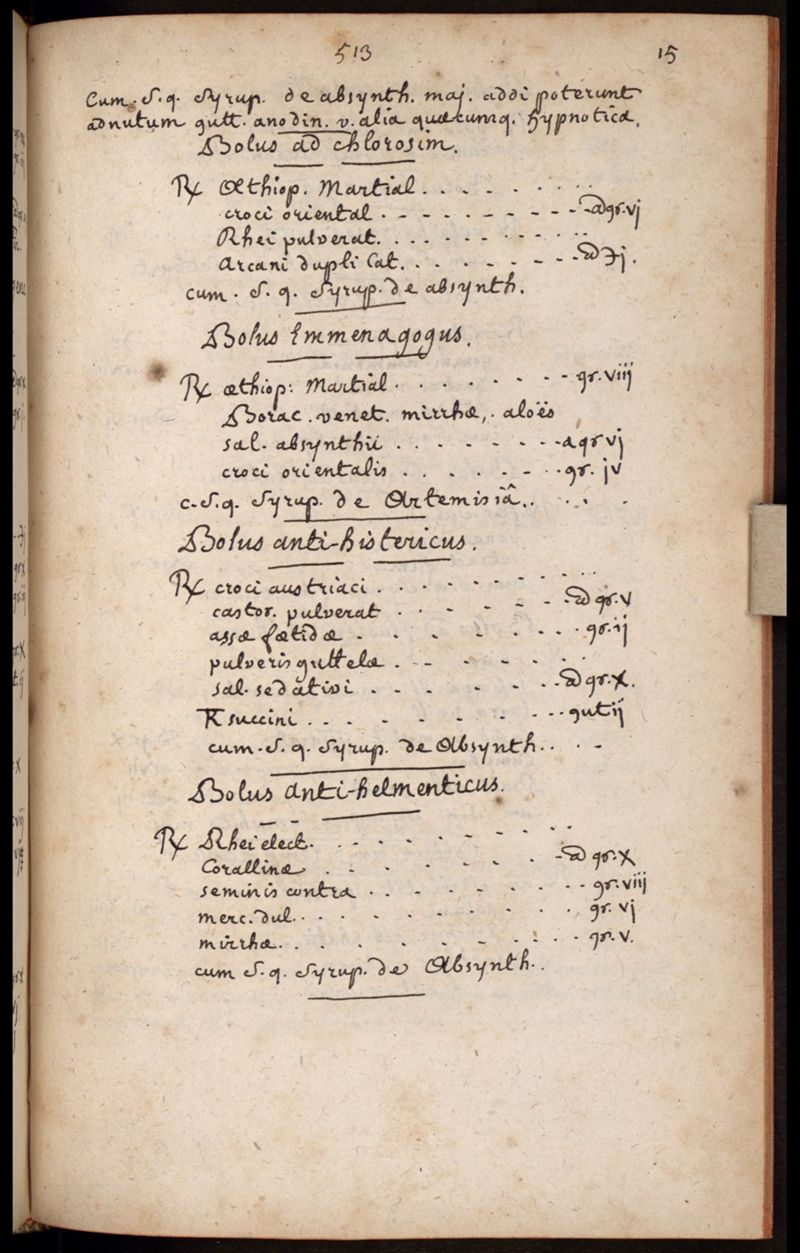 513 15
Cum. S. q. Syrup. de absynth. maj. addi poterunt
adnutum gutt. anodin. v. alia quæcumq. hypnotica.
Bolus ad chlorosim.
℞ Æthiop. Martial. . . . . . . . .
croci oriental . - - . - . - - - - - ā gr. vj
Rhei pulverat. . . . . . - - . - - . .
Arcani dupli Cat. . . . . - . - - - ā ℈j.
cum. S. q. Syrup. de absynth.
Bolus Emmenagogus.
℞ æthiop. Martial . . . . . . - - gr. viij
Borac. venet. mirrhæ, . aloës
sal. absynthii . . . . - . - - - a gr vj
croci orientalis . . . . . - - . gr. jv
c. S. q. Syrup. de Artemisiâ. . . . .
Bolus anti-histericus.
℞ croci austriaci . . . - - - - . . .
castor. pulverat . . - - - - - ā gr. v
assæ fœtidæ . - . . - - - . . gr. ij
pulveris guttetæ . - - . - - . .
sal. sedativi . - . - - - . - ā gr. X.
succini . . . - - - - - - . gut ij
cum. S. q. Syrup. de Absynth. . . -
Bolus anti-helmenticus.
℞ Rhei elect. . - . . - - - - . .
Corallinæ . - . . - - . . - ā gr. X
seminis contra . . - . - - - . - gr. viij
merc. dul. . . . . . - . . . gr. vj
mirrhæ. . . . . . - - : . . gr. v.
cum S. q. Syrup. de Absynth. .